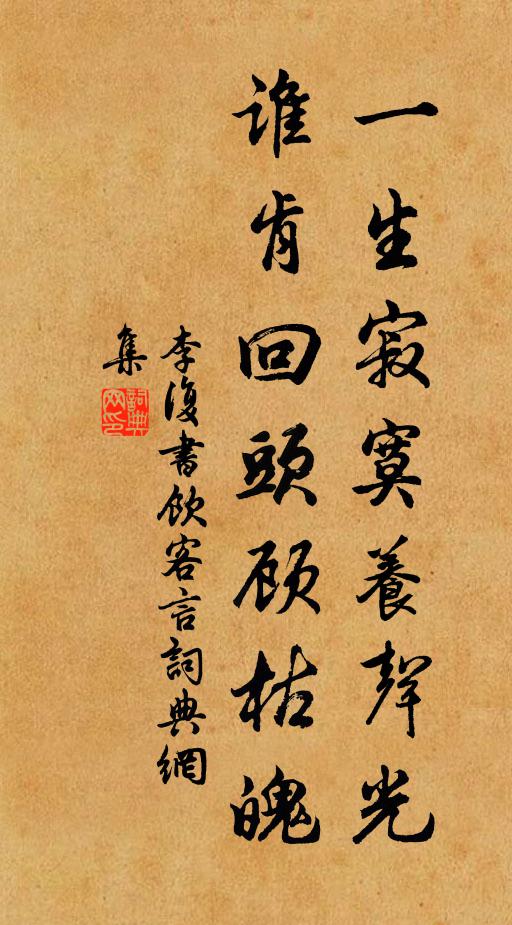 一生寂寞養聲光
誰肯回頭顧枯魄
李復書飲客言詞典網
集
詞典網印